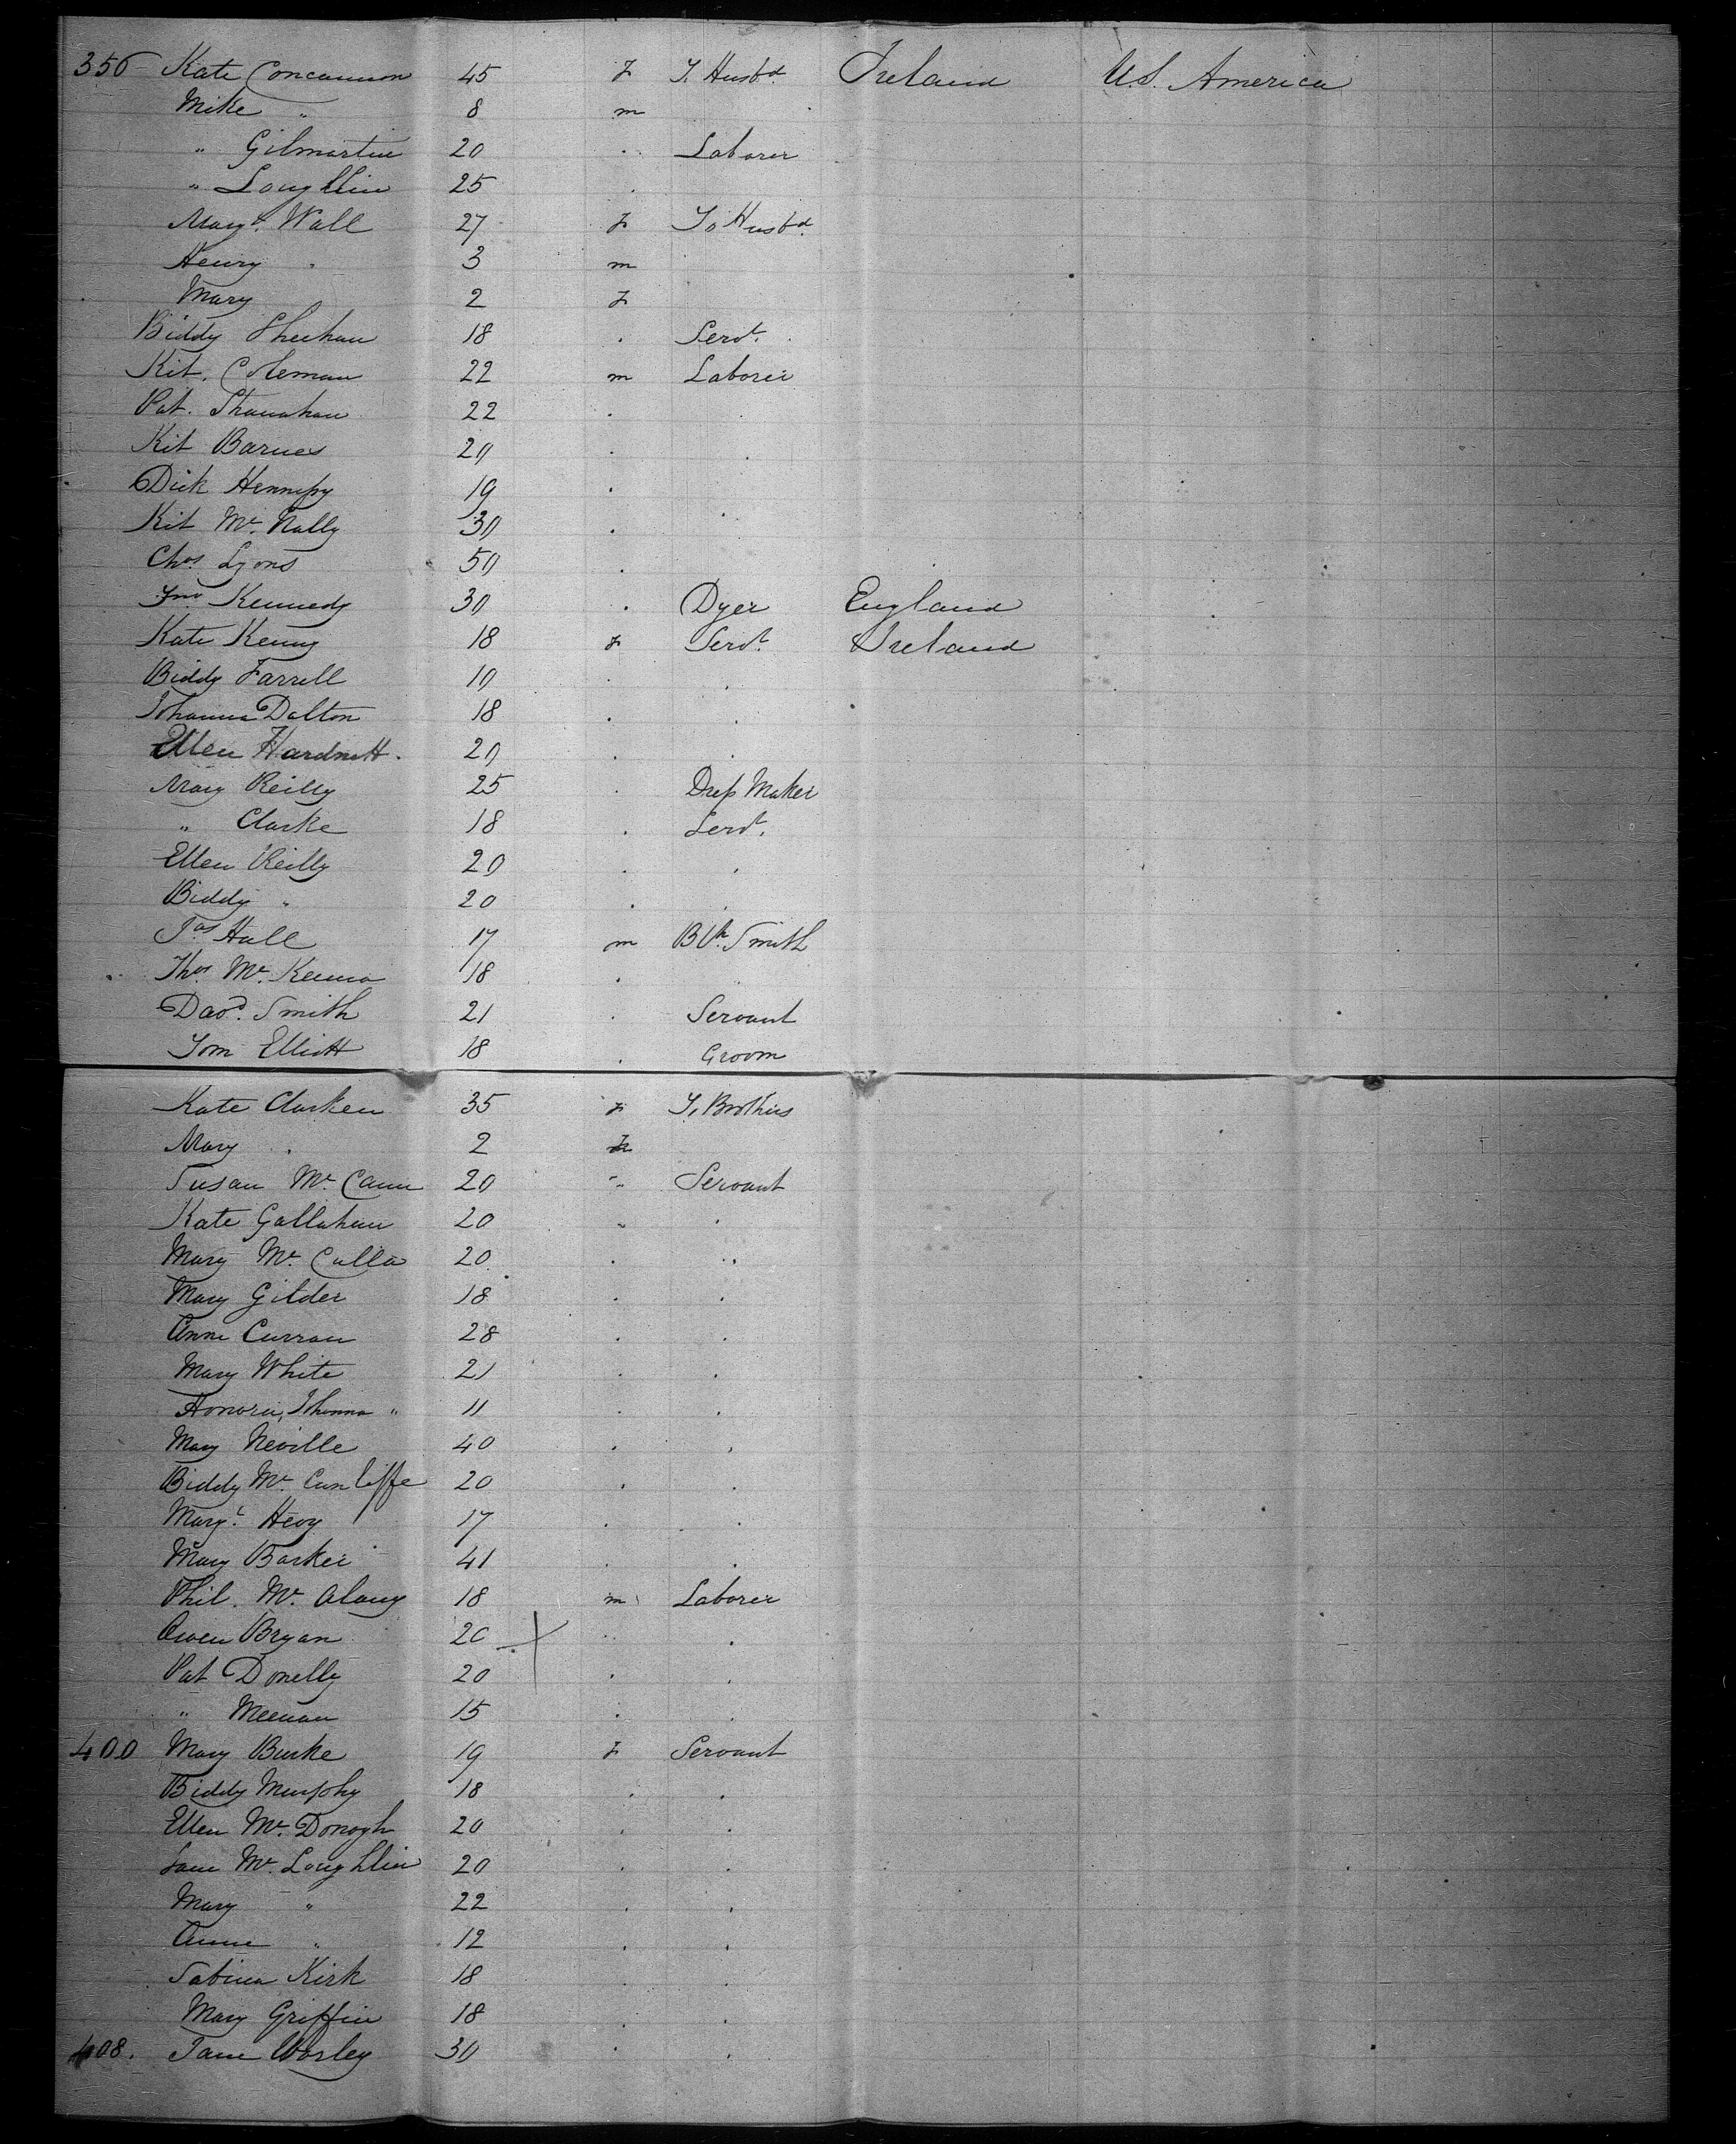 356 Kate Concannon 45 f To Husbd Ireland U.S. America
Mike " 8 m
" Gilmartin 20 . Laborer
" Loughlin 25 .
Margt. Wall 27 f To Husbd.
Henry . 3 m
Mary 2 f
Biddy Sheehan 18 . Servt.
Kit. Coleman 22 m Laborer
Pat. Shanahan 22 .
Kit Barnes 20 . .
Dick Hennessy 19 .
Kit Mc. Nally 30 . .
Chas Lyons 50 .
Jno Kennedy 30 . Dyer England
Kate Kenny 18 f Servt. Ireland
Biddy Farrell 19 . .
Johanna Dalton 18 . .
Ellen Hardnett. 20 . .
Mary Reilly 25 . Dress Maker
" Clarke 18 . Servt.
Ellen Reilly 20 . .
Biddy " 20 . .
Jas Hall 17 m Blk. Smith
Thos Mc. Kenna 18 .
Davd. Smith 21 . Servant
Tom Elliott 18 . Groom
Kate Clarken 35 f To Brothers
Mary . 2 f
Susan Mc. Cann 20 " Servant
Kate Gallahan 20 " .
Mary Mc. Culla 20 . "
Mary Gilder 18 . .
Anne Curran 28 . .
Mary White 21 . .
Honora, Johanna " 11 . .
Mary Neville 40 . .
Biddy Mc. Cunliffe 20 . .
Margt. Hevy 17 . .
Mary Barker 41 . .
Phil. Mc. Alany 18 m Laborer
Owen Bryan 20 " .
Pat Donelly 20 . .
" Meenan 15 . .
400 Mary Burke 19 f Servant
Biddy Murphy 18 . .
Ellen Mc. Donogh 20 . .
Jane Mc. Loughlin 20 . .
Mary " 22 . .
Anne " 12 . .
Sabina Kirk 18 . .
Mary Griffin 18 . .
408. Jane Worley 30 . .